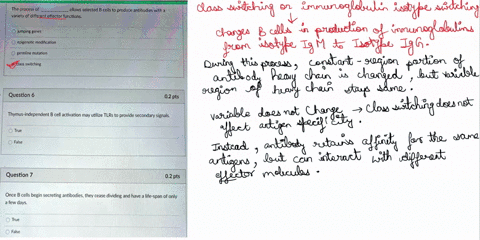 The process of allows selected B cells to produce antibodies with a
variety of different effector functions.
jumping genes
epigenetic modification
promiscuous mutation
class switching
Question 6
0.2 pts
Thymus-independent B cell activation may utilize TLRs to provide secondary signals.
True
False
Question 7
0.2 pts
Once B cells begin secreting antibodies, they cease dividing and have a life-span of only
a few days.
True
False
Class switching or immunoglobulin isotype switching
changes B cells in production of immunoglobulins
from isotype IgM to Isotype IgG.
During this process, constant-region portion of
antibody heavy chain is changed, but variable
region of heavy chain stays same.
variable does not Change → Class switching does not
affect antigen specificity.
Instead, antibody retains affinity for the same
antigens, but can interact with different
effector molecules.